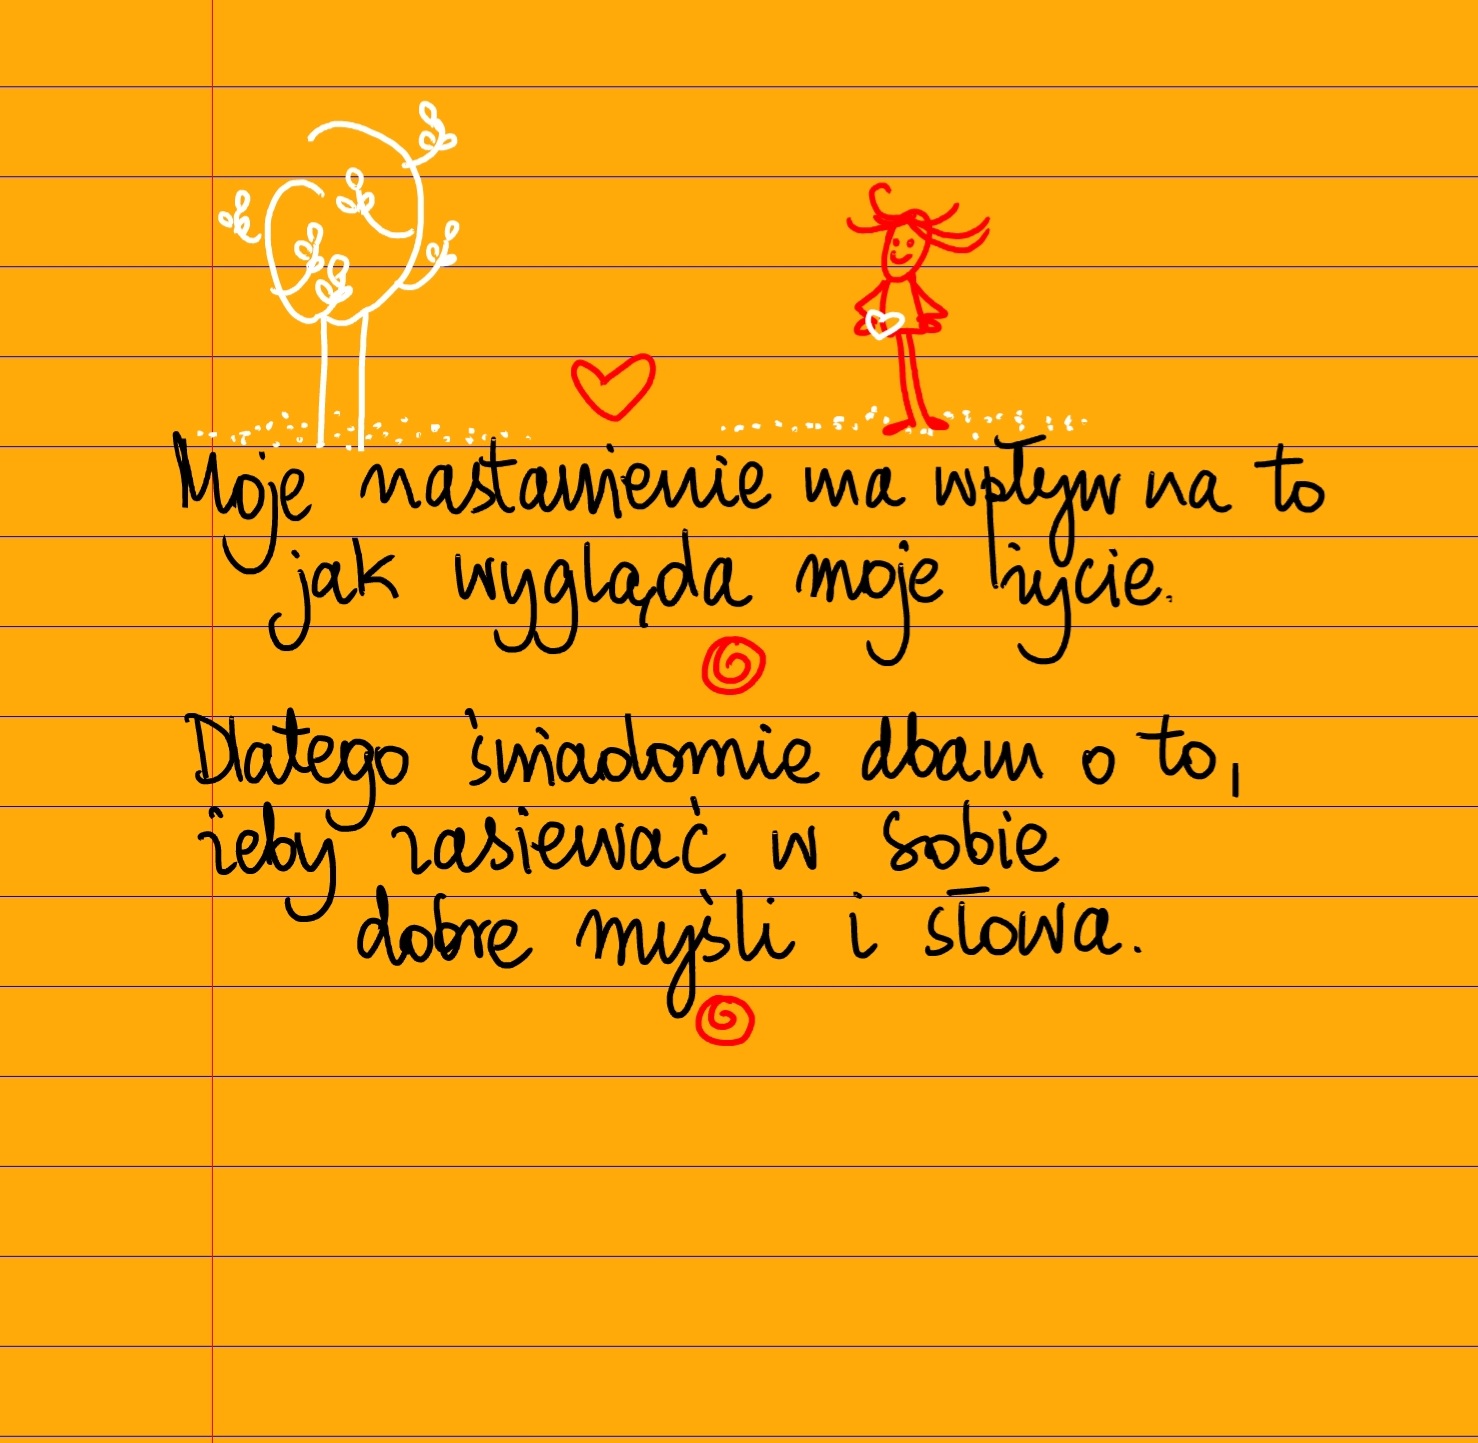 Moje nastawienie ma wpływ na to
jak wygląda moje życie.
Dlatego świadomie dbam o to,
żeby zasiewać w sobie
dobre myśli i słowa.